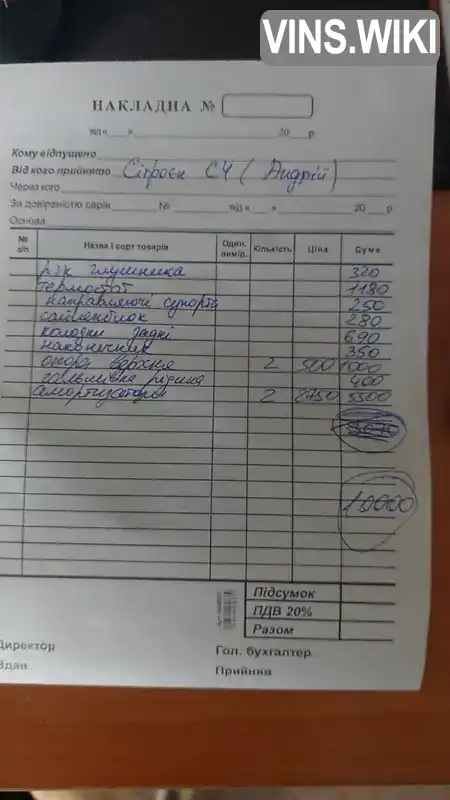 VINS.WIKI
НАКЛАДНА №
від « » 20 р
Кому відпущено
Від кого прийнято Сітроєн С4 (Андрій)
Через кого
За довіреністю серія № від « » 20 р
Основа
№ з/п Назва і сорт товарів Один. вимір. Кількість Ціна Сума
р/к глушника 320
термостат 1180
направляючі супорта 250
сайлентблок 280
колодки задні 690
наконечник 350
опора верхня 2 500 1000
гальмівна рідина 400
амортизатори 2 2750 5500
10000
Підсумок
ПДВ 20%
Разом
Директор Гол. бухгалтер
Здав Прийняв